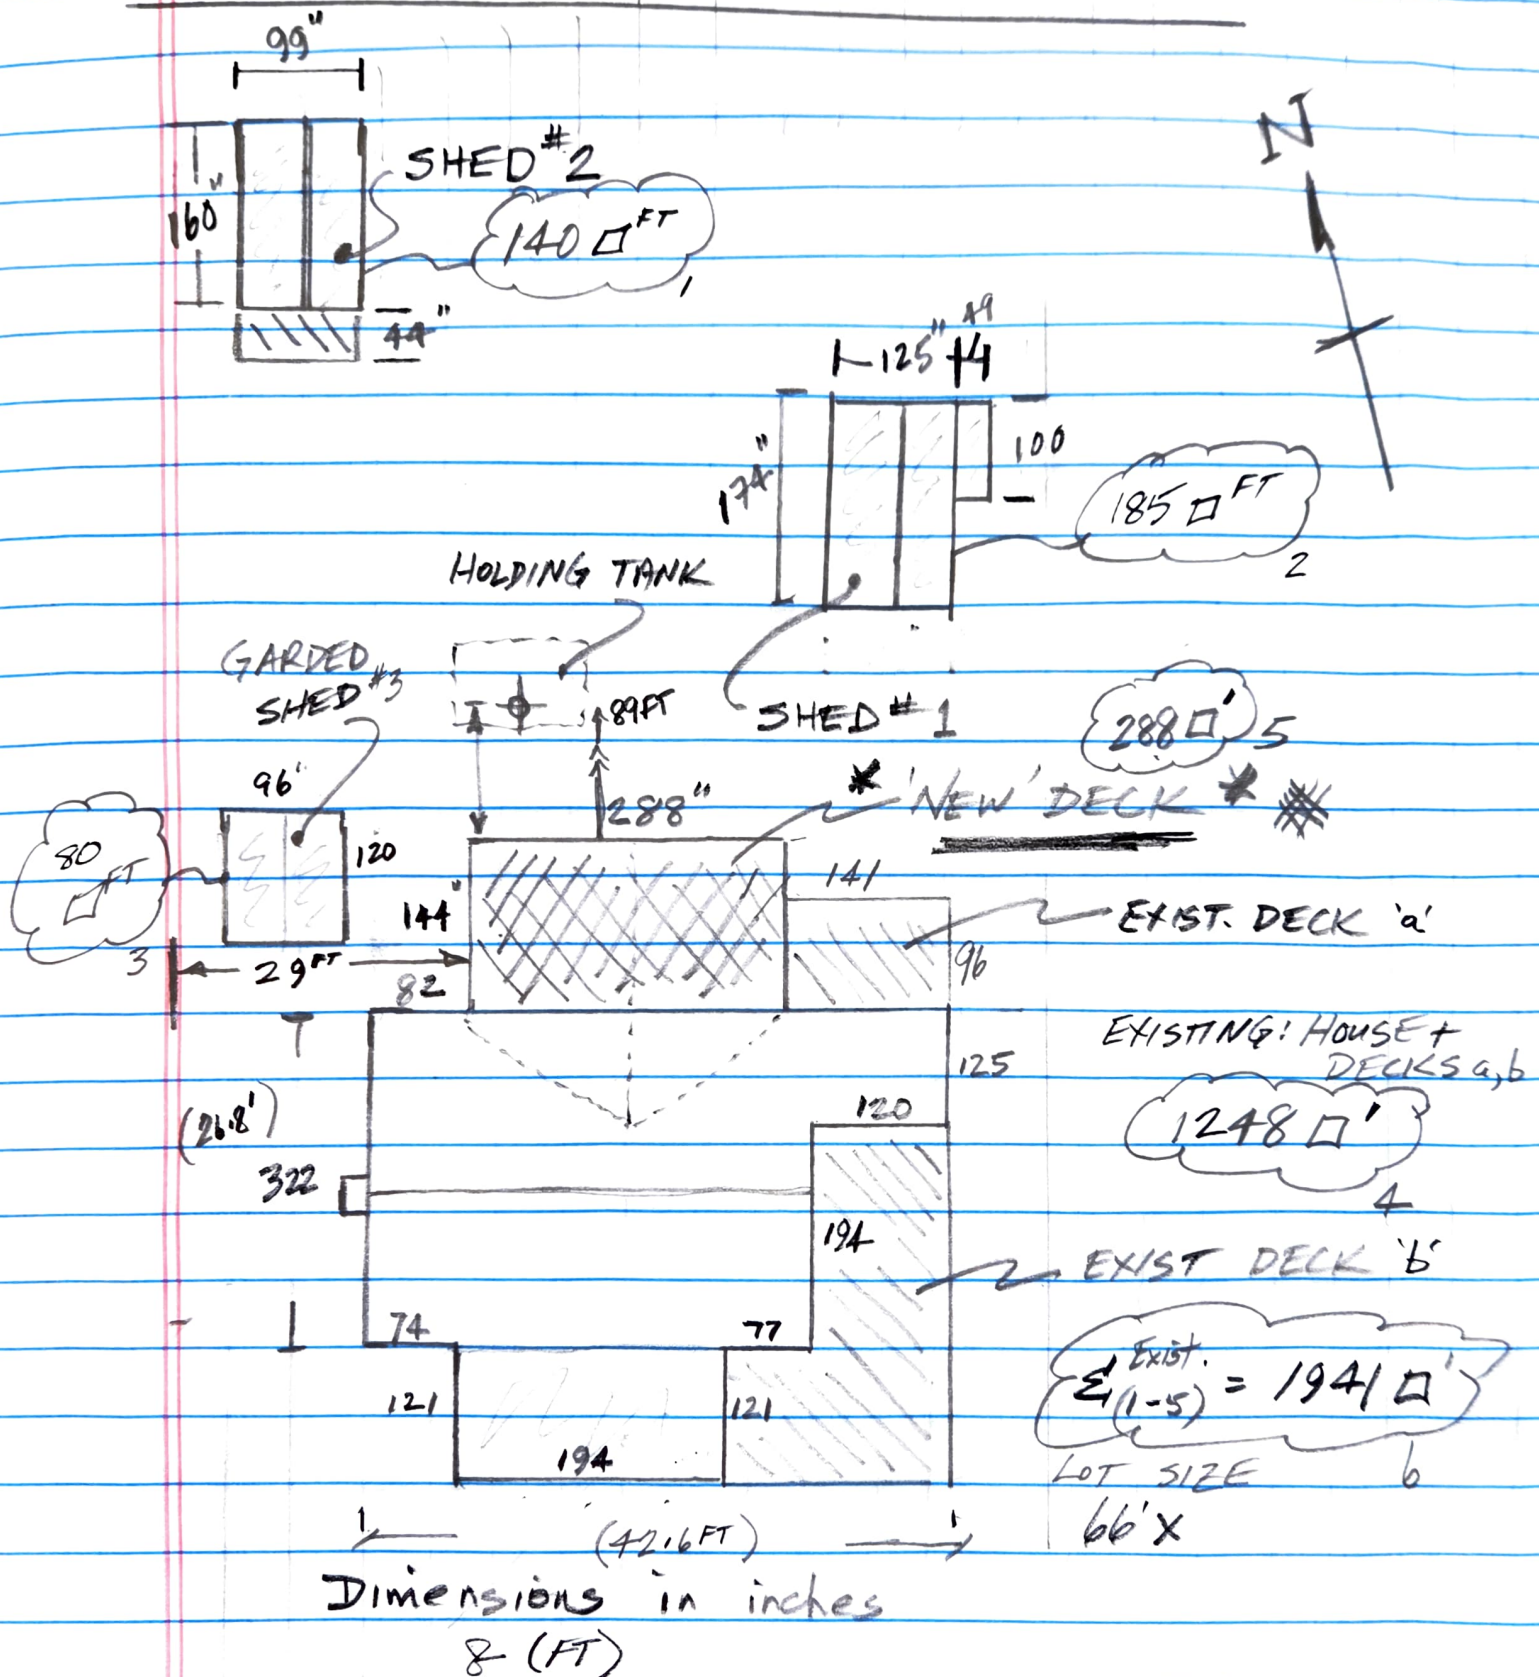 99"
SHED #2
160"
140 □ FT
1
44"
N
125" 49
174"
100
185 □ FT
2
HOLDING TANK
GARDED
SHED #3
89FT
SHED #1
288 □' 5
96'
288"
* 'NEW' DECK *
80
□ FT
3
120
144"
141
EXIST. DECK 'a'
29 FT
82
96
EXISTING: HOUSE +
DECKS a,b
125
120
(26.8')
1248 □'
4
322
194
EXIST DECK 'b'
74
77
Σ Exist. (1-5) = 1941 □'
6
121
121
194
LOT SIZE
66' X
(42.6 FT)
Dimensions in inches
& (FT)